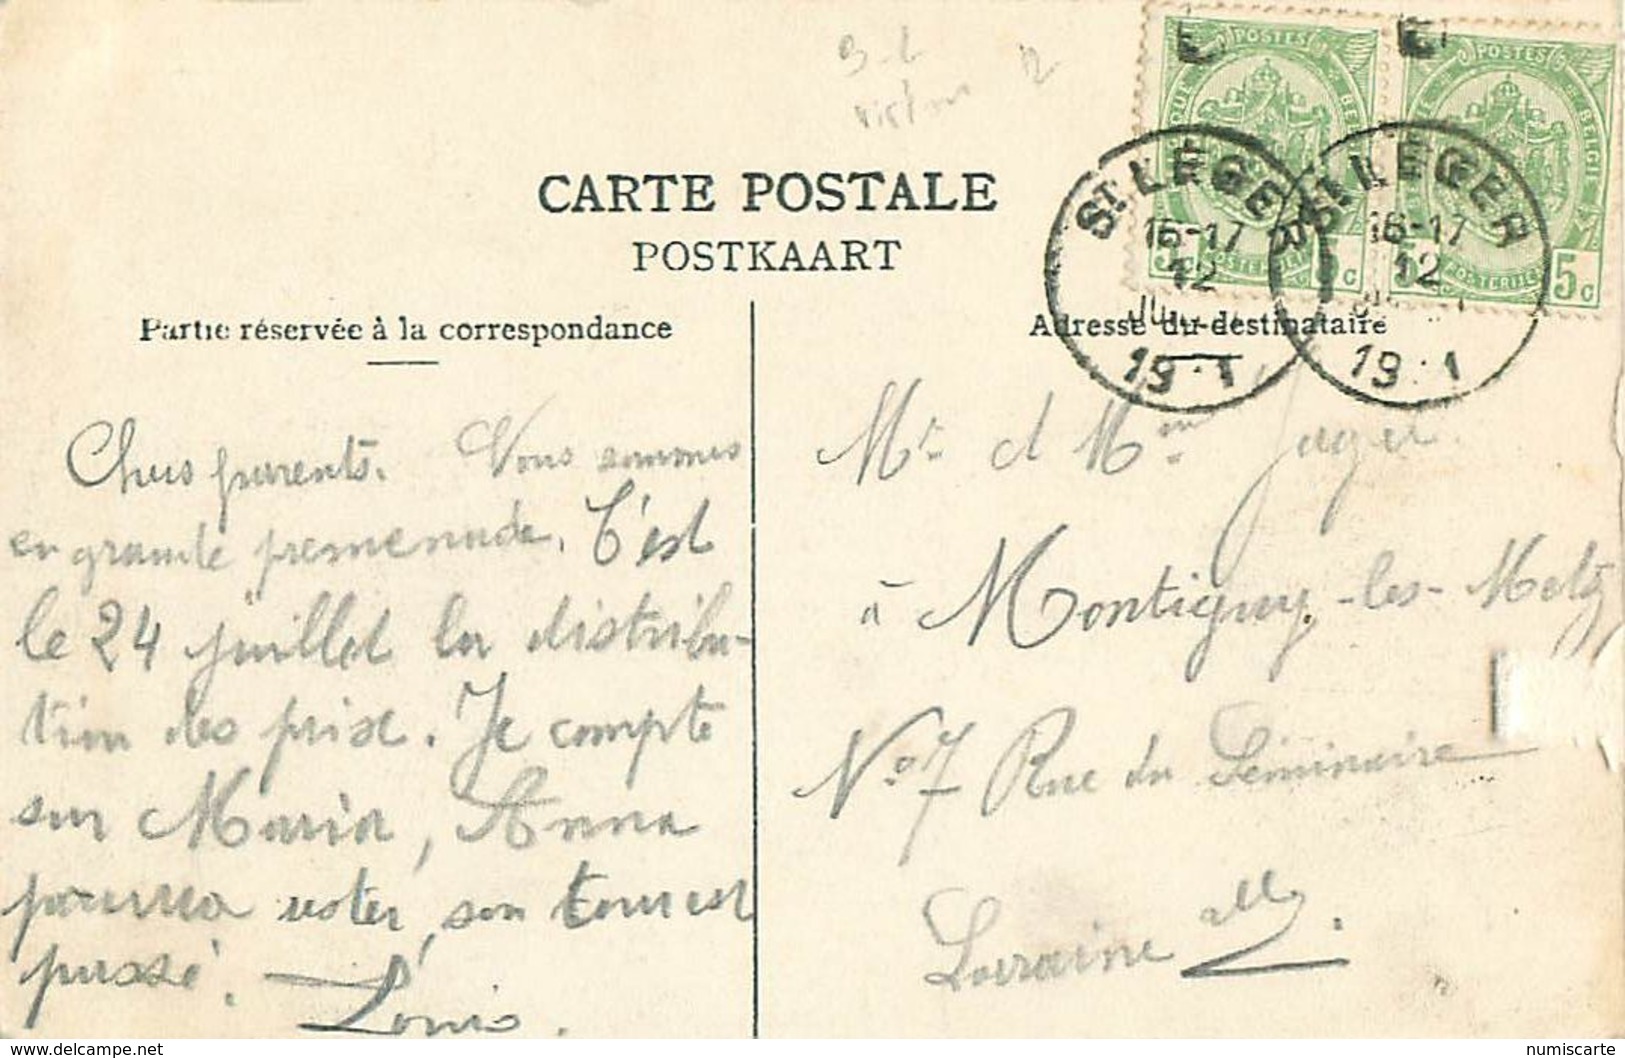 CARTE POSTALE
POSTKAART
Partie réservée à la correspondance
Adresse du destinataire
POSTES
BELGIE
5c
POSTES
BELGIE
POSTERIJEN
5c
ST LÉGER
16-17
12
ST LÉGER
16-17
12
Chers parents. Vous sommes
en grande promenade. C'est
le 24 juillet la distribu-
tion des prix. Je compte
sur Maria, Anna
pourra rester, son tour est
passé.
Louis.
Mr et Mme
à Montigny-les-Metz
No 7 Rue du Séminaire
Lorraine all.
delcampe.net
numiscarte